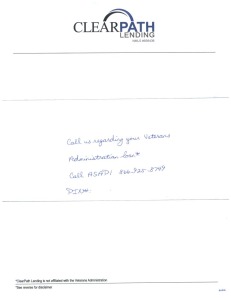 CLEARPATH
LENDING
Call us regarding your Veterans
Administration loan*
Call ASAP!
*ClearPath Lending is not affiliated with the Veterans Administration
*See reverse for disclaimer